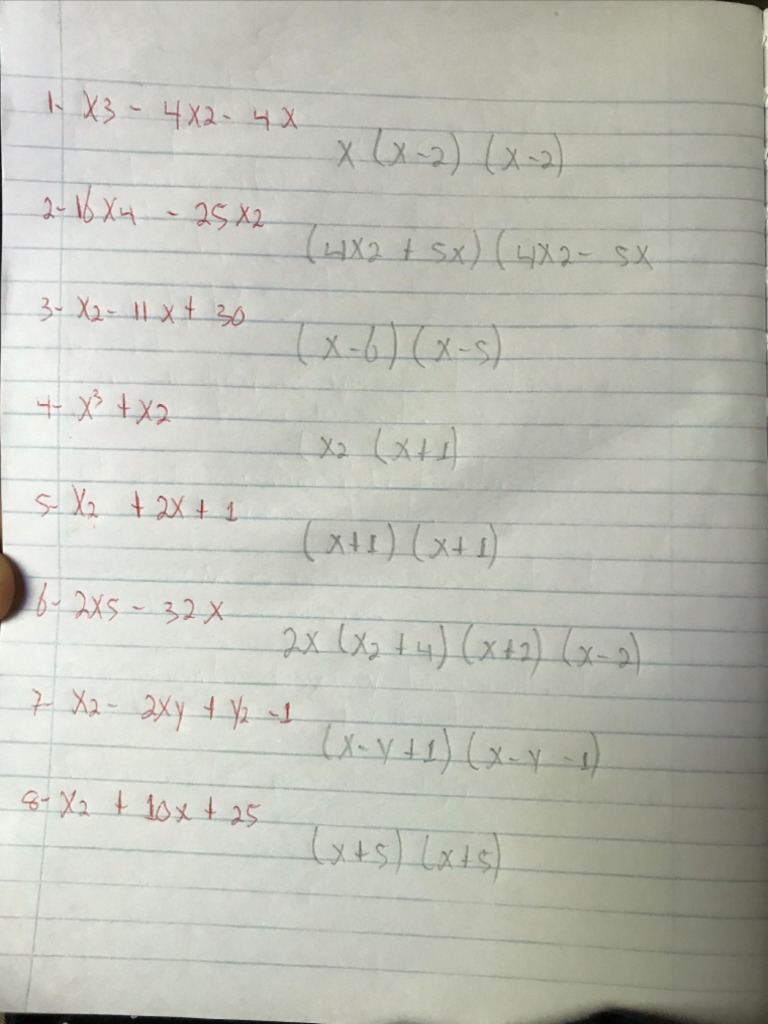 1- X3 - 4X2 - 4X
X (X-2) (X-2)
2- 16X4 - 25X2
(4X2 + 5X) (4X2 - 5X
3- X2 - 11X + 30
(X-6) (X-5)
4- X³ + X2
X2 (X+1)
5- X2 + 2X + 1
(X+1) (X+1)
6- 2X5 - 32X
2X (X2 + 4) (X+2) (X-2)
7- X2 - 2XY + Y2 - 1
(X-Y+1) (X-Y-1)
8- X2 + 10X + 25
(X+5) (X+5)